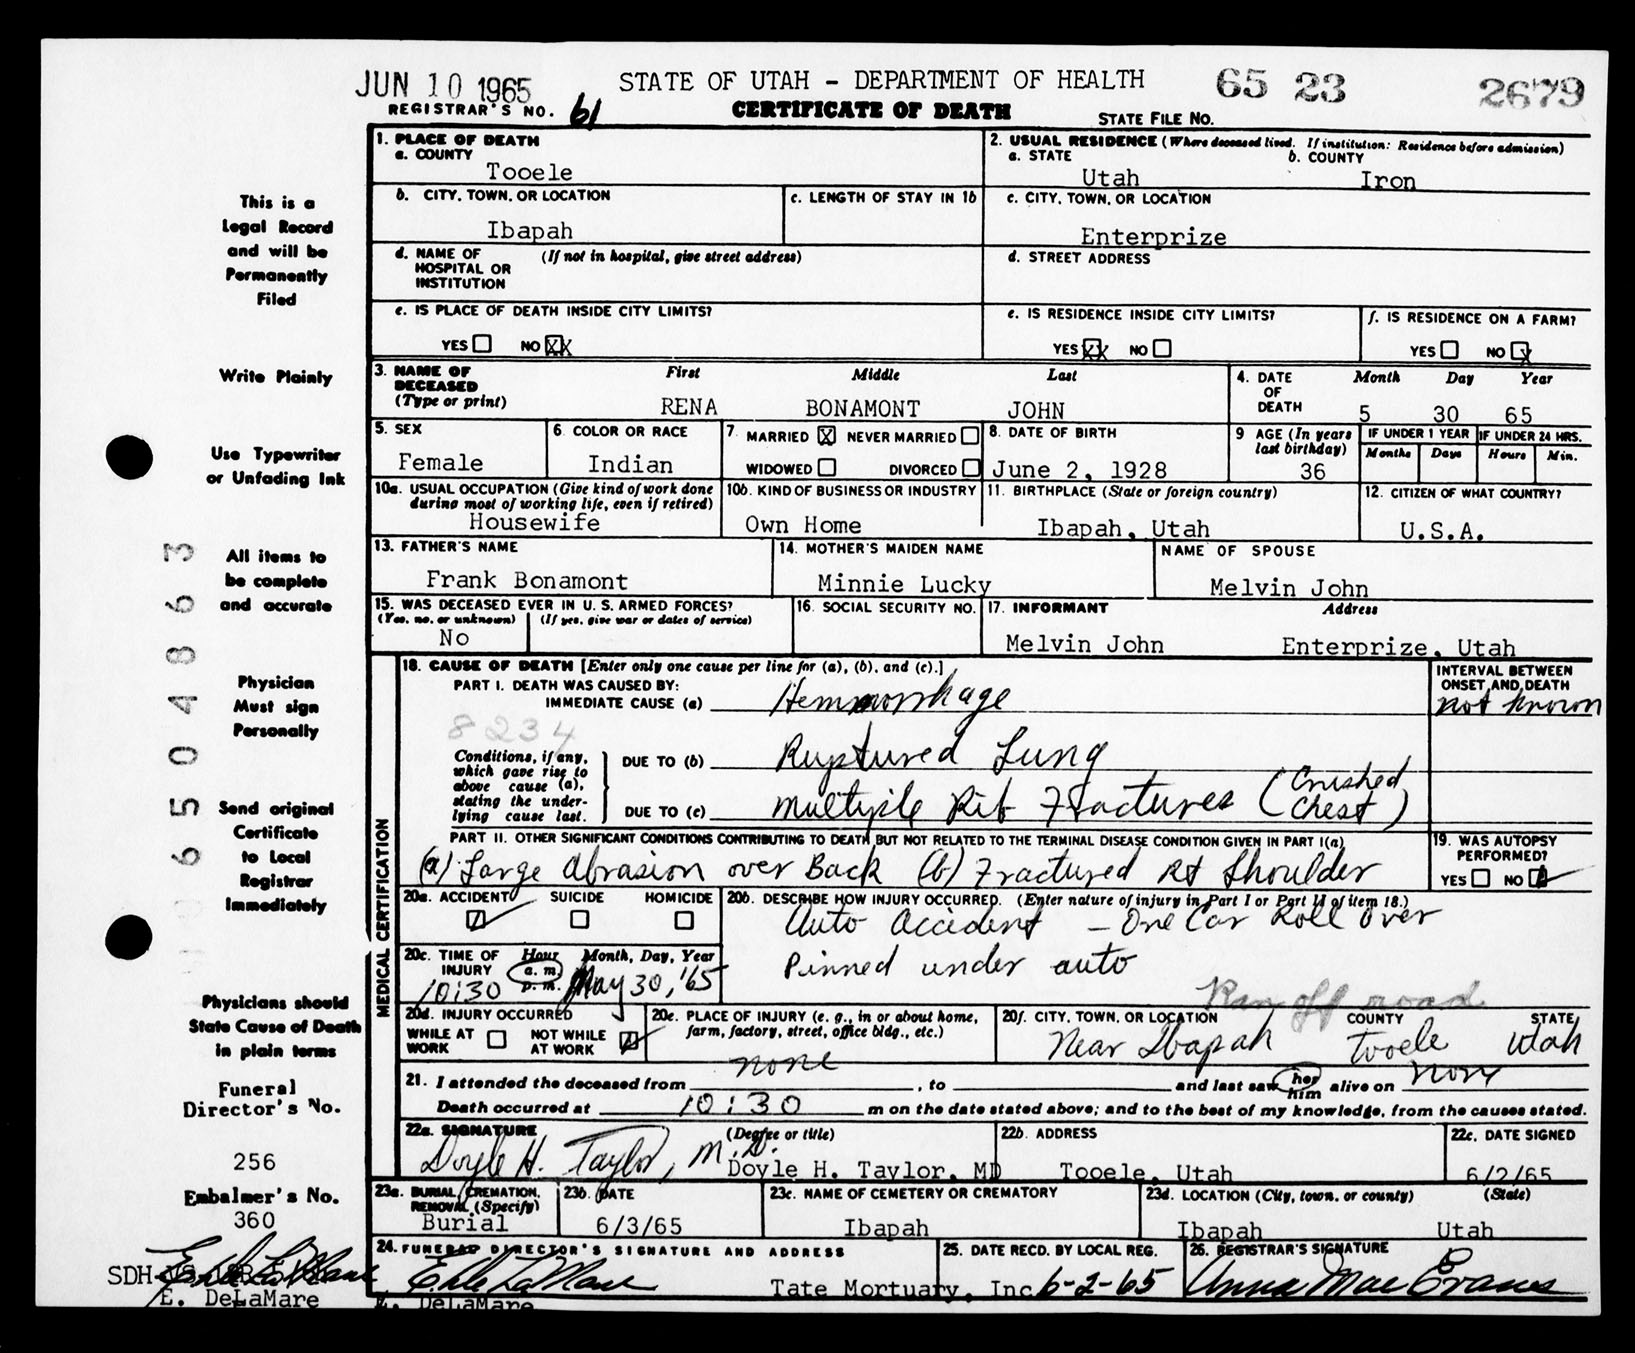 JUN 10 1965 STATE OF UTAH – DEPARTMENT OF HEALTH 65 23 2679
REGISTRAR'S NO. 61 CERTIFICATE OF DEATH STATE FILE NO.
This is a Legal Record and will be Permanently Filed
Write Plainly
Use Typewriter or Unfading Ink
All items to be complete and accurate
Physician Must sign Personally
Send original Certificate to Local Registrar Immediately
Physicians should State Cause of Death in plain terms
Funeral Director's No.
256
Embalmer's No.
360
E. DeLaMare
6504863
1. PLACE OF DEATH
a. COUNTY
Tooele
2. USUAL RESIDENCE (Where deceased lived. If institution: Residence before admission)
a. STATE b. COUNTY
Utah Iron
b. CITY, TOWN, OR LOCATION
Ibapah
c. LENGTH OF STAY IN 1b
c. CITY, TOWN, OR LOCATION
Enterprize
d. NAME OF HOSPITAL OR INSTITUTION (If not in hospital, give street address)
d. STREET ADDRESS
e. IS PLACE OF DEATH INSIDE CITY LIMITS?
YES NO XX
e. IS RESIDENCE INSIDE CITY LIMITS?
YES XX NO
f. IS RESIDENCE ON A FARM?
YES NO X
3. NAME OF DECEASED (Type or print) First Middle Last
RENA BONAMONT JOHN
4. DATE OF DEATH Month Day Year
5 30 65
5. SEX
Female
6. COLOR OR RACE
Indian
7. MARRIED X NEVER MARRIED
WIDOWED DIVORCED
8. DATE OF BIRTH
June 2, 1928
9 AGE (In years last birthday)
36
IF UNDER 1 YEAR IF UNDER 24 HRS.
Months Days Hours Min.
10a. USUAL OCCUPATION (Give kind of work done during most of working life, even if retired)
Housewife
10b. KIND OF BUSINESS OR INDUSTRY
Own Home
11. BIRTHPLACE (State or foreign country)
Ibapah, Utah
12. CITIZEN OF WHAT COUNTRY?
U.S.A.
13. FATHER'S NAME
Frank Bonamont
14. MOTHER'S MAIDEN NAME
Minnie Lucky
NAME OF SPOUSE
Melvin John
15. WAS DECEASED EVER IN U. S. ARMED FORCES?
(Yes, no, or unknown) (If yes, give war or dates of service)
No
16. SOCIAL SECURITY NO.
17. INFORMANT Address
Melvin John Enterprize, Utah
MEDICAL CERTIFICATION
18. CAUSE OF DEATH [Enter only one cause per line for (a), (b), and (c).]
INTERVAL BETWEEN ONSET AND DEATH
not known
PART I. DEATH WAS CAUSED BY:
IMMEDIATE CAUSE (a) Hemmorrhage
8234
Conditions, if any, which gave rise to above cause (a), stating the underlying cause last.
DUE TO (b) Ruptured Lung
DUE TO (c) multiple Rib Fractures (Crushed Chest)
PART II. OTHER SIGNIFICANT CONDITIONS CONTRIBUTING TO DEATH BUT NOT RELATED TO THE TERMINAL DISEASE CONDITION GIVEN IN PART I(a)
(a) Large Abrasion over Back (b) Fractured Rt Shoulder
19. WAS AUTOPSY PERFORMED?
YES NO
20a. ACCIDENT SUICIDE HOMICIDE
20b. DESCRIBE HOW INJURY OCCURRED. (Enter nature of injury in Part I or Part II of item 18.)
Auto Accident – One Car Roll Over
Pinned under auto
Ran off road
20c. TIME OF INJURY Hour Month, Day, Year
a. m.
p. m.
10:30 May 30, '65
20d. INJURY OCCURRED
WHILE AT WORK NOT WHILE AT WORK
20e. PLACE OF INJURY (e. g., in or about home, farm, factory, street, office bldg., etc.)
20f. CITY, TOWN, OR LOCATION COUNTY STATE
Near Ibapah Tooele Utah
21. I attended the deceased from none, to and last saw her him alive on none
Death occurred at 10:30 m on the date stated above; and to the best of my knowledge, from the causes stated.
22a. SIGNATURE (Degree or title)
Doyle H. Taylor, M.D. Doyle H. Taylor, MD
22b. ADDRESS
Tooele, Utah
22c. DATE SIGNED
6/2/65
23a. BURIAL, CREMATION, REMOVAL (Specify)
Burial
23b. DATE
6/3/65
23c. NAME OF CEMETERY OR CREMATORY
Ibapah
23d. LOCATION (City, town, or county) (State)
Ibapah Utah
24. FUNERAL DIRECTOR'S SIGNATURE AND ADDRESS
E. DeLaMare
Tate Mortuary, Inc
25. DATE RECD. BY LOCAL REG.
6-2-65
26. REGISTRAR'S SIGNATURE
Anna Mae Evans